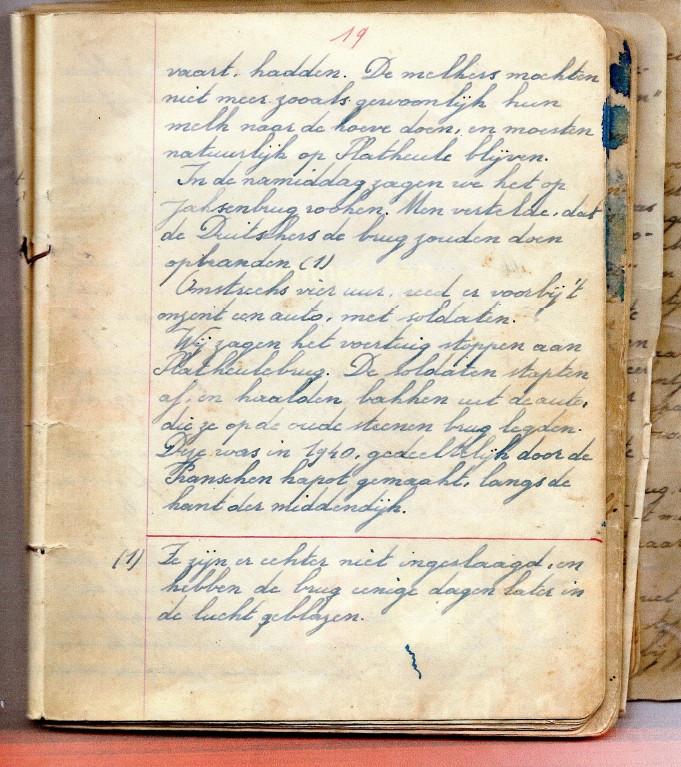 19
vaart, hadden. De melkers mochten
niet meer zooals gewoonlijk hun
melk naar de hoeve doen, en moesten
natuurlijk op Platheule blijven.
In de namiddag zagen we het op
Jaksenbrug rooken. Men vertelde, dat
de Duitschers de brug zouden doen
opbranden (1)
Omstreeks vier uur, reed er voorbij 't
onzent een auto, met soldaten.
Wij zagen het voertuig stoppen aan
Platheulebrug. De soldaten stapten
af, en haalden bakken uit de auto,
die ze op de oude steenen brug legden.
Deze was in 1940, gedeeltelijk door de
Franschen kapot gemaakt, langs de
kant der middendijk.
(1) Ze zijn er echter niet ingeslaagd, en
hebben de brug eenige dagen later in
de lucht geblazen.